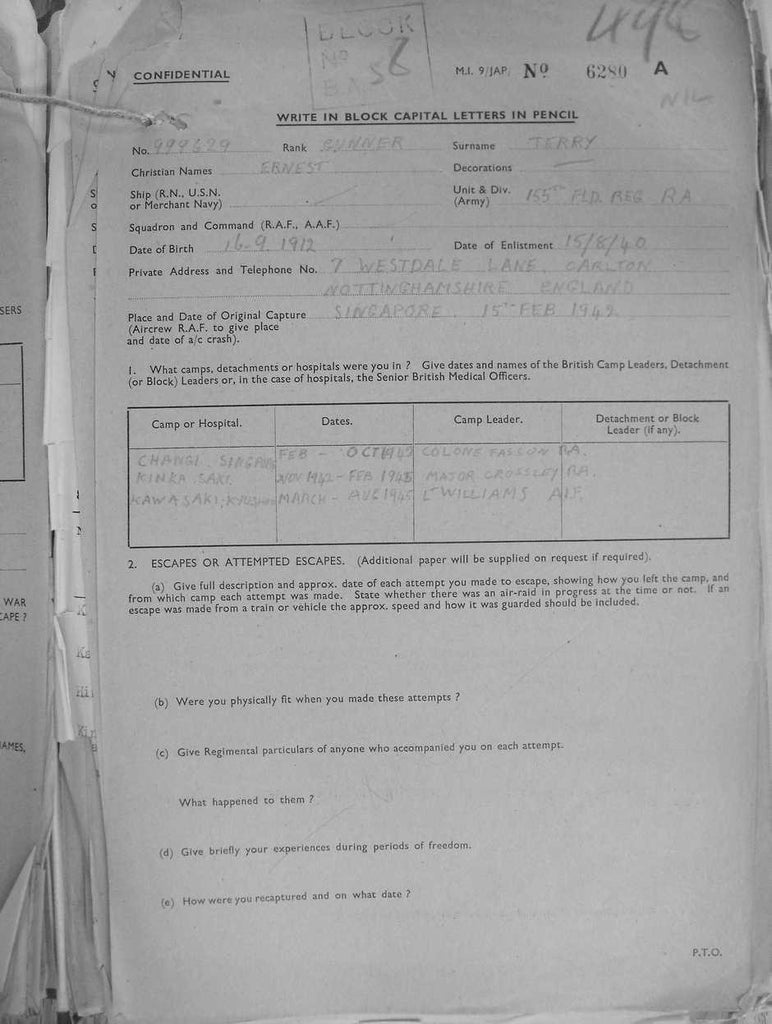 BLOCK
No 6
BAS
CONFIDENTIAL
M.I. 9/JAP/ No 6280 A
NIL
WRITE IN BLOCK CAPITAL LETTERS IN PENCIL
No. Rank GUNNER Surname TERRY
Christian Names ERNEST Decorations —
Ship (R.N., U.S.N.
or Merchant Navy)
Unit & Div.
(Army) 155TH FLD. REG RA
Squadron and Command (R.A.F., A.A.F.)
Date of Birth 16.9.1912 Date of Enlistment 15/8/40
Private Address and Telephone No. 7 WESTDALE LANE, CARLTON
NOTTINGHAMSHIRE ENGLAND
Place and Date of Original Capture SINGAPORE. 15TH FEB 1942
(Aircrew R.A.F. to give place
and date of a/c crash).
1. What camps, detachments or hospitals were you in ? Give dates and names of the British Camp Leaders, Detachment
(or Block) Leaders or, in the case of hospitals, the Senior British Medical Officers.
Camp or Hospital. Dates. Camp Leader. Detachment or Block
Leader (if any).
CHANGI. FEB - OCT 1942 RA.
KINKA SAKI. NOV 1942 - FEB 1945 MAJOR CROSSLEY RA.
KAWASAKI, MARCH - AUG 1945 LT WILLIAMS AIF.
2. ESCAPES OR ATTEMPTED ESCAPES. (Additional paper will be supplied on request if required).
(a) Give full description and approx. date of each attempt you made to escape, showing how you left the camp, and
from which camp each attempt was made. State whether there was an air-raid in progress at the time or not. If an
escape was made from a train or vehicle the approx. speed and how it was guarded should be included.
(b) Were you physically fit when you made these attempts ?
(c) Give Regimental particulars of anyone who accompanied you on each attempt.
What happened to them ?
(d) Give briefly your experiences during periods of freedom.
(e) How were you recaptured and on what date ?
P.T.O.
SERS
WAR
CAPE ?
AMES,